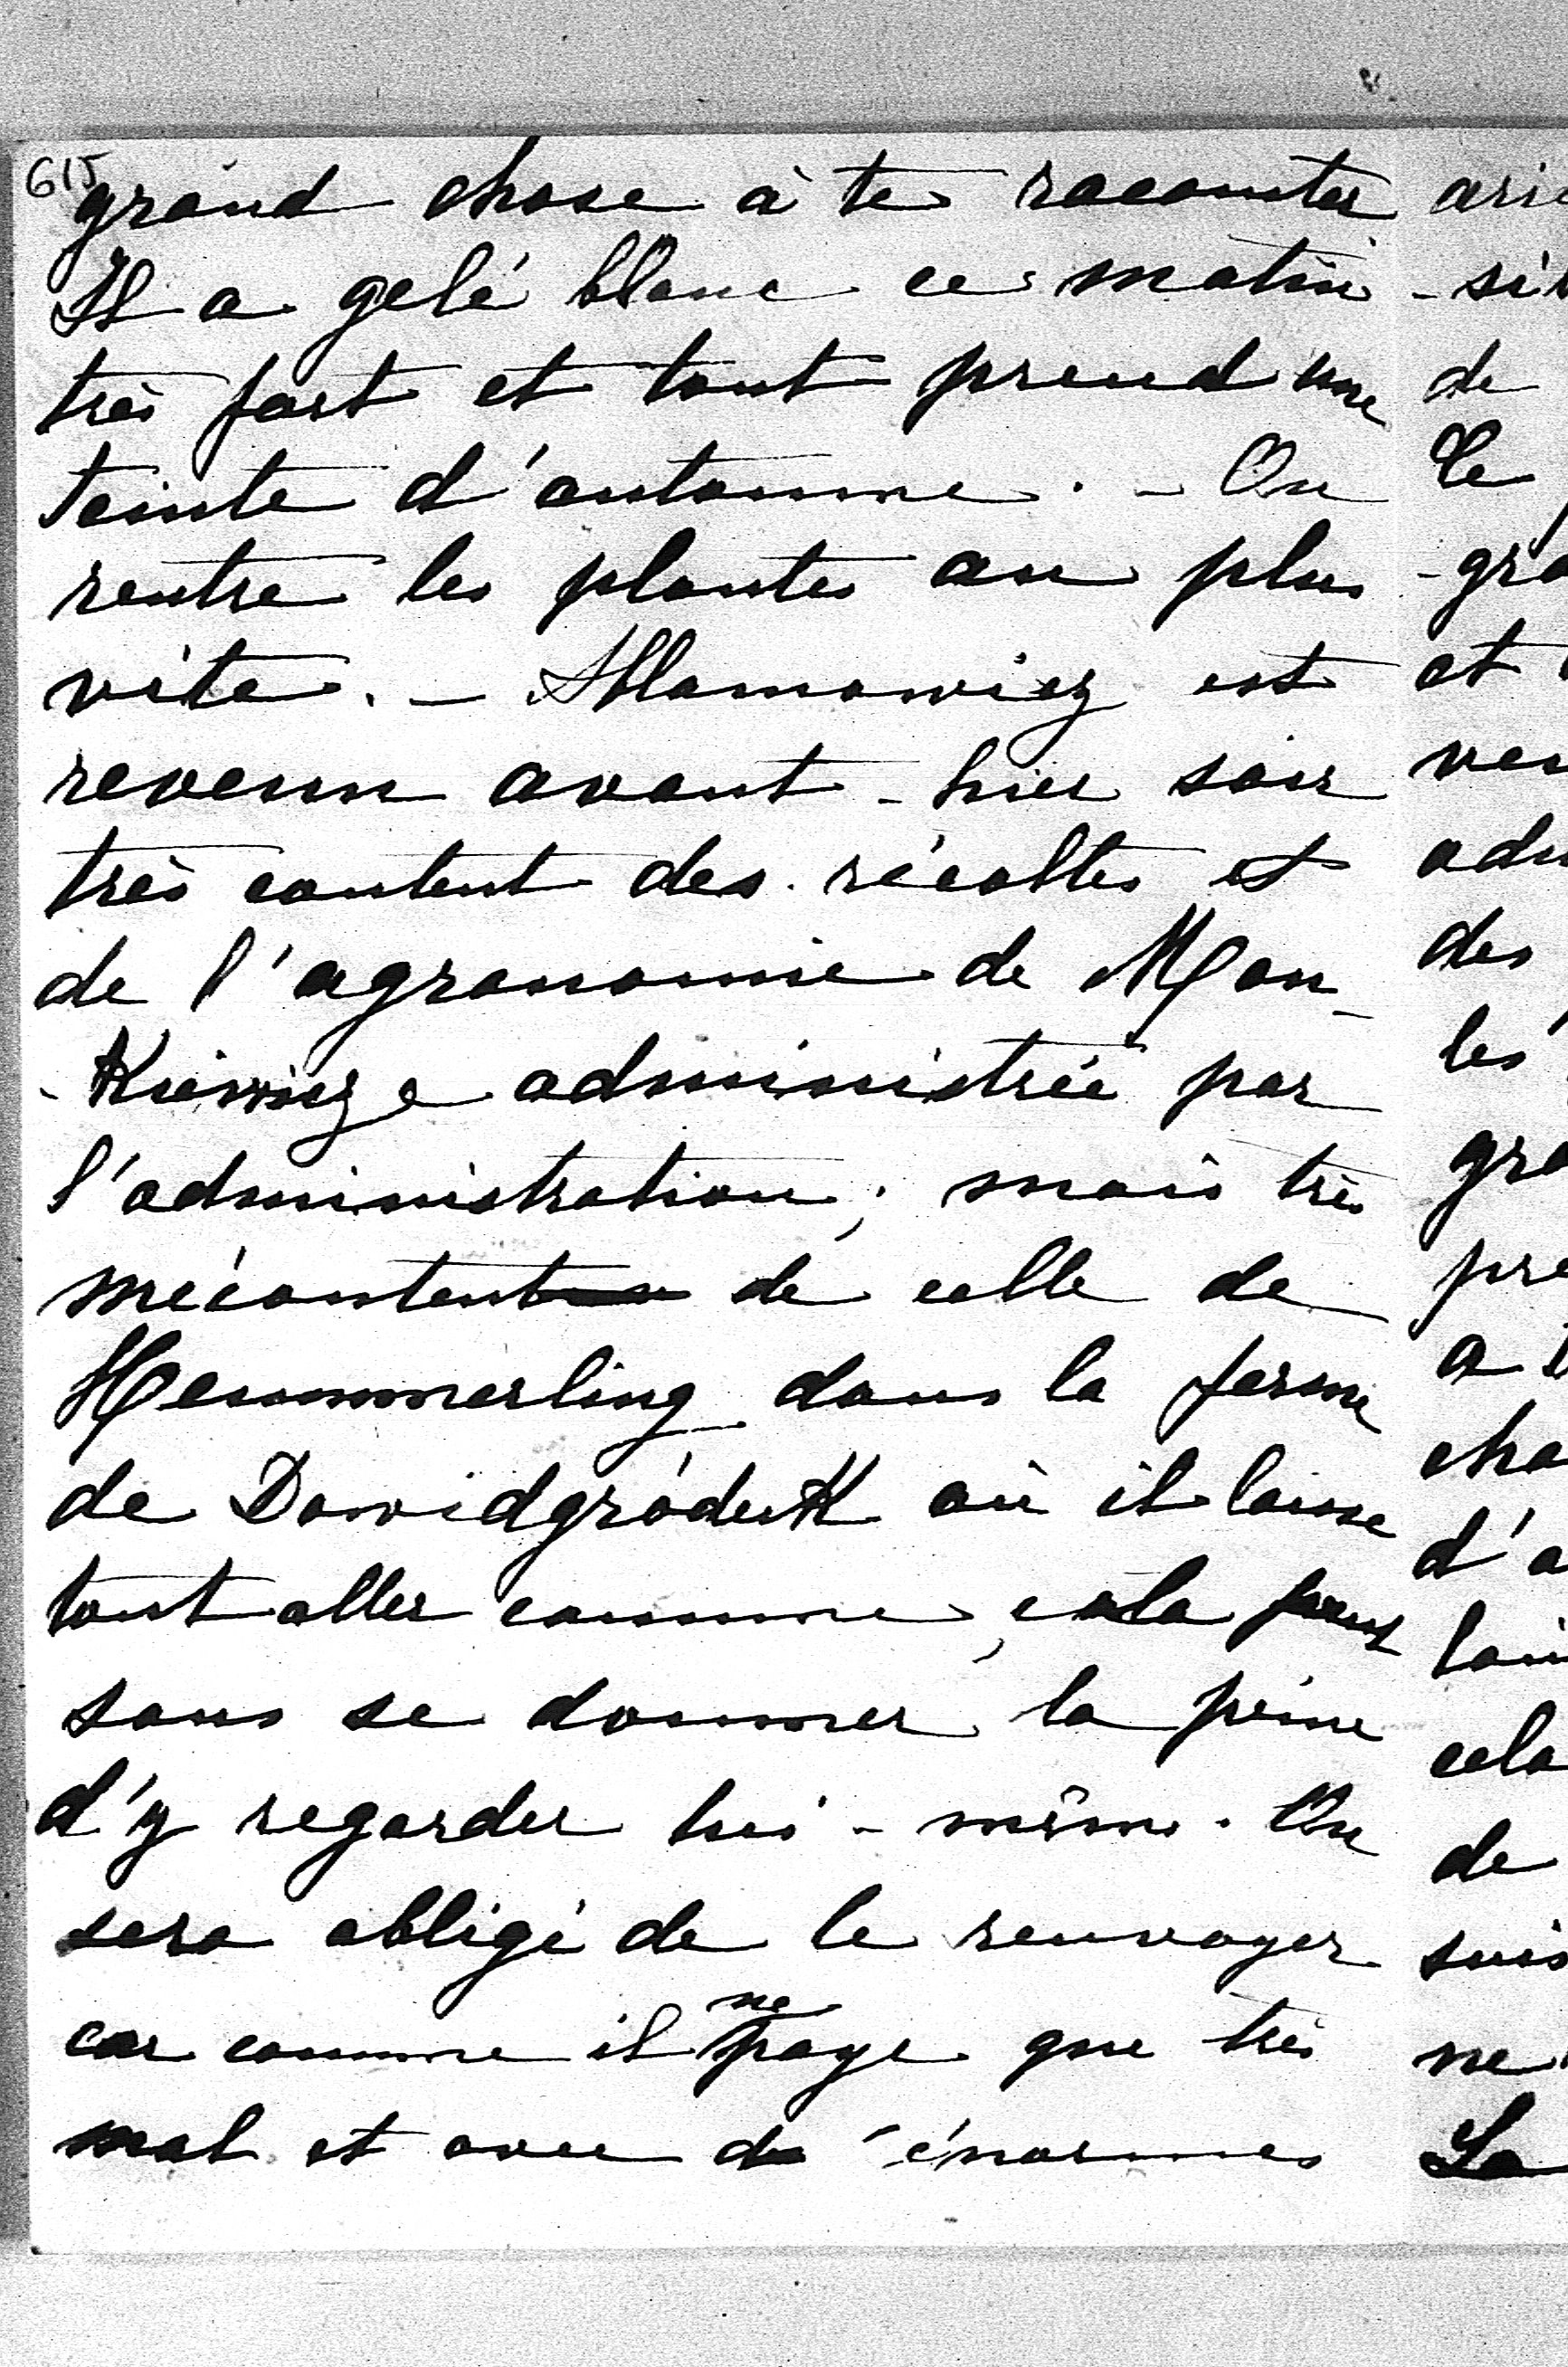 615
grand chose à te raconter
Il a gelé blanc ce matin
très fort et tout prend une
teinte d'automne. - On
rentre les plantes au plus
vite. - Ablamowicz est
revenu avant-hier soir
très content des récoltes et
de l'agronomie de Man-
-Kiewicze administrée par
l'administration; mais très
mécontent de celle de
Hemmerling dans la ferme
de Dawidgródek où il laisse
tout aller comme cela peut
sans se donner la peine
d'y regarder lui-même. On
sera obligé de le renvoyer
car comme il ne paye que très
mal et avec d'énormes
de
Le
et
des
les
a
d'a
cela
de
suis
ne
La